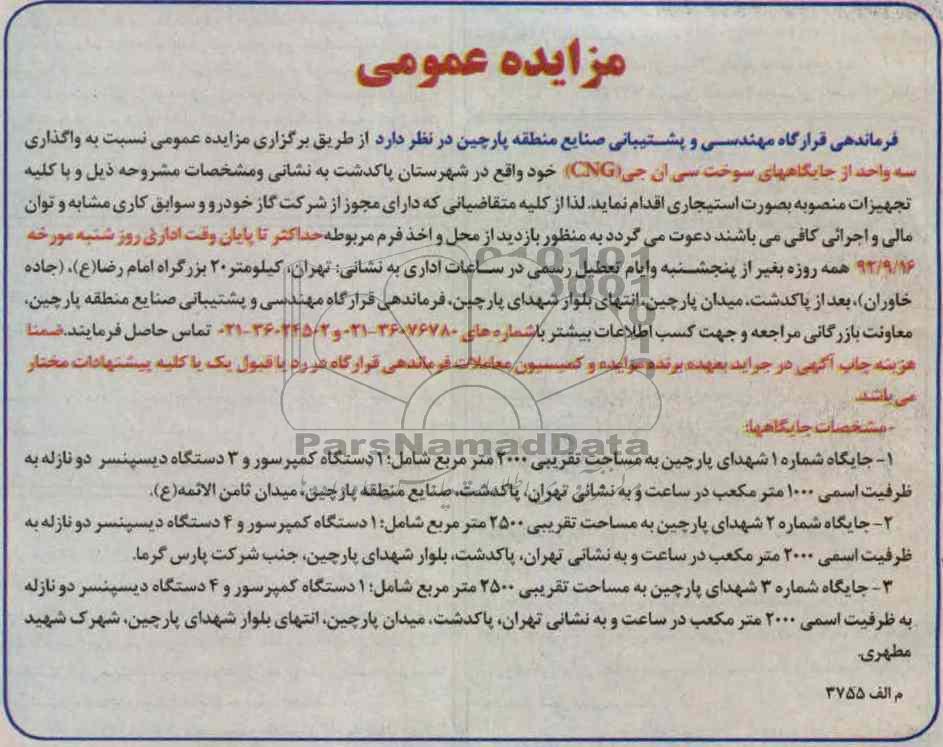 مزایده عمومی
فرماندهی قرارگاه مهندسی و پشتیبانی صنایع منطقه پارچین در نظر دارد از طریق برگزاری مزایده عمومی نسبت به واگذاری
سه واحد از جایگاههای سوخت سی ان جی (CNG) خود واقع در شهرستان پاکدشت به نشانی ومشخصات مشروحه ذیل و با کلیه
تجهیزات منصوبه بصورت استیجاری اقدام نماید. لذا از کلیه متقاضیانی که دارای مجوز از شرکت گاز خودرو و سوابق کاری مشابه و توان
مالی و اجرائی کافی می باشند دعوت می گردد به منظور بازدید از محل و اخذ فرم مربوطه حداکثر تا پایان وقت اداری روز شنبه مورخه
۹۲/۹/۱۶ همه روزه بغیر از پنجشنبه وایام تعطیل رسمی در ساعات اداری به نشانی: تهران، کیلومتر ۲۰ بزرگراه امام رضا(ع)، (جاده
خاوران)، بعد از پاکدشت، میدان پارچین، انتهای بلوار شهدای پارچین، فرماندهی قرارگاه مهندسی و پشتیبانی صنایع منطقه پارچین،
معاونت بازرگانی مراجعه و جهت کسب اطلاعات بیشتر با شماره های ۳۶۰۷۶۷۸۰-۰۲۱ و ۳۶۰۲۴۵۰۲-۰۲۱ تماس حاصل فرمایند. ضمنا
هزینه چاپ آگهی در جراید بعهده برنده مزایده و کمیسیون معاملات فرماندهی قرارگاه در رد یا قبول یک یا کلیه پیشنهادات مختار
می باشد.
-مشخصات جایگاهها:
ParsNamadData
۱- جایگاه شماره ۱ شهدای پارچین به مساحت تقریبی ۲۰۰۰ متر مربع شامل: ۱ دستگاه کمپرسور و ۳ دستگاه دیسپنسر دو نازله به
ظرفیت اسمی ۱۰۰۰ متر مکعب در ساعت و به نشانی تهران، پاکدشت، صنایع منطقه پارچین، میدان ثامن الائمه(ع).
۲- جایگاه شماره ۲ شهدای پارچین به مساحت تقریبی ۲۵۰۰ متر مربع شامل: ۱ دستگاه کمپرسور و ۴ دستگاه دیسپنسر دو نازله به
ظرفیت اسمی ۲۰۰۰ متر مکعب در ساعت و به نشانی تهران، پاکدشت، بلوار شهدای پارچین، جنب شرکت پارس گرما.
۳- جایگاه شماره ۳ شهدای پارچین به مساحت تقریبی ۲۵۰۰ متر مربع شامل: ۱ دستگاه کمپرسور و ۴ دستگاه دیسپنسر دو نازله
به ظرفیت اسمی ۲۰۰۰ متر مکعب در ساعت و به نشانی تهران، پاکدشت، میدان پارچین، انتهای بلوار شهدای پارچین، شهرک شهید
مطهری.
م الف ۳۷۵۵